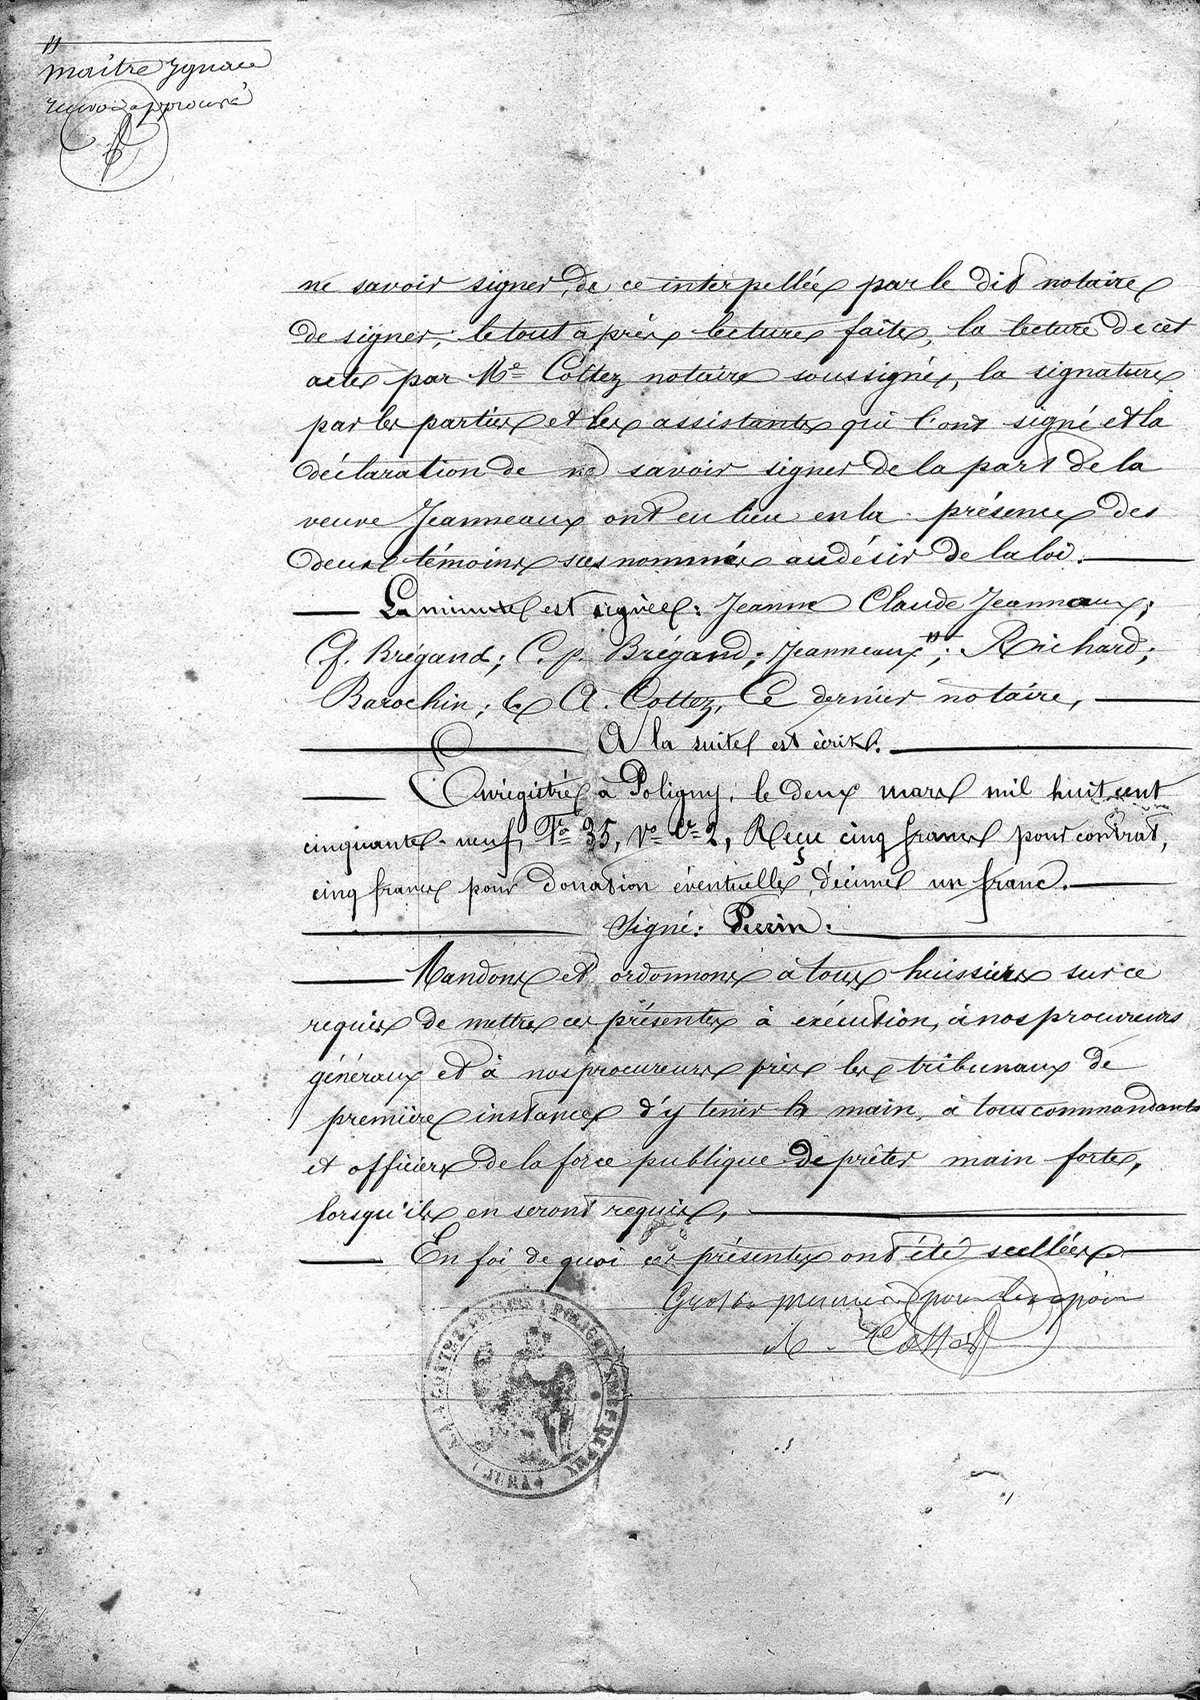 "
maître Ignace
renvoi approuvé
ne savoir signer, de ce interpellée par le dit notaire
de signer; le tout après lecture faite, la lecture de cet
acte par Me Cottez notaire soussigné, la signature
par les parties et les assistants qui l'ont signé et la
déclaration de ne savoir signer de la part de la
veuve Jeanneaux ont eu lieu en la présence des
deux témoins sus nommés au désir de la loi.
La minute est signée: Jeanne Claude Jeanneaux;
f. Brégand; C. p. Brégand; Jeanneaux "; Richard;
Barochin; & A. Cottez, Ce dernier notaire,
A la suite est écrit.
Enregistré à Poligny, le deux mars mil huit cent
cinquante-neuf, Fo 35, Vo Ce 2, Reçu cinq francs pour contrat,
cinq francs pour donation éventuelle, décime un franc.
Signé: Perrin.
Mandons et ordonnons à tous huissiers sur ce
requis de mettre ces présentes à exécution, à nos procureurs
généraux et à nos procureurs près les tribunaux de
première instance d'y tenir la main, à tous commandants
et officiers de la force publique de prêter main forte,
lorsqu'ils en seront requis,
En foi de quoi ces présentes ont été scellées
pour
A. Cottez
POLIGNY
(JURA)